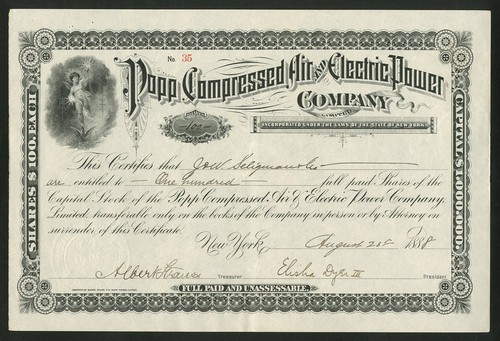 No. 35
Popp Compressed Air and Electric Power
COMPANY
LIMITED
100
INCORPORATED UNDER THE LAWS OF THE STATE OF NEW YORK
SHARES $100. EACH
CAPITAL $1,000,000.
This Certifies that J & W Seligman & Co
are entitled to One hundred full paid Shares of the
Capital Stock of the Popp Compressed Air & Electric Power Company,
Limited, transferable only on the books of the Company in person or by Attorney on
surrender of this Certificate.
New York, August 20th 1888
Albert Strauss Treasurer Elisha Dyer III President
FULL PAID AND UNASSESSABLE.